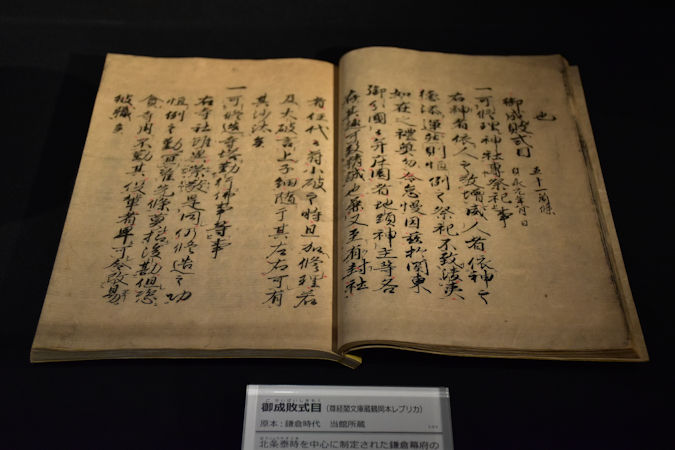 也
御成敗式目 五十一箇條
一 可修理神社專祭祀事
右神者依人之敬增威人者依神之
如在之禮奠勿令怠慢因茲於關東
御分國々并庄園者地頭神主等各
存其趣可致精誠也兼又至有封社
者任代々符小破之時且加修理若
及大破言上子細随于其左右可有
其沙汰矣
一 可修造寺塔勤行佛事等事
右寺社雖異崇敬是同仍修造之功
恒例之勤宜准先條莫招後勘但恣
貪寺用不勤其役輩者早可令改易
彼職矣
御成敗式目（尊経閣文庫蔵鶴岡本レプリカ）
原本：鎌倉時代　当館所蔵
北条泰時を中心に制定された鎌倉幕府の